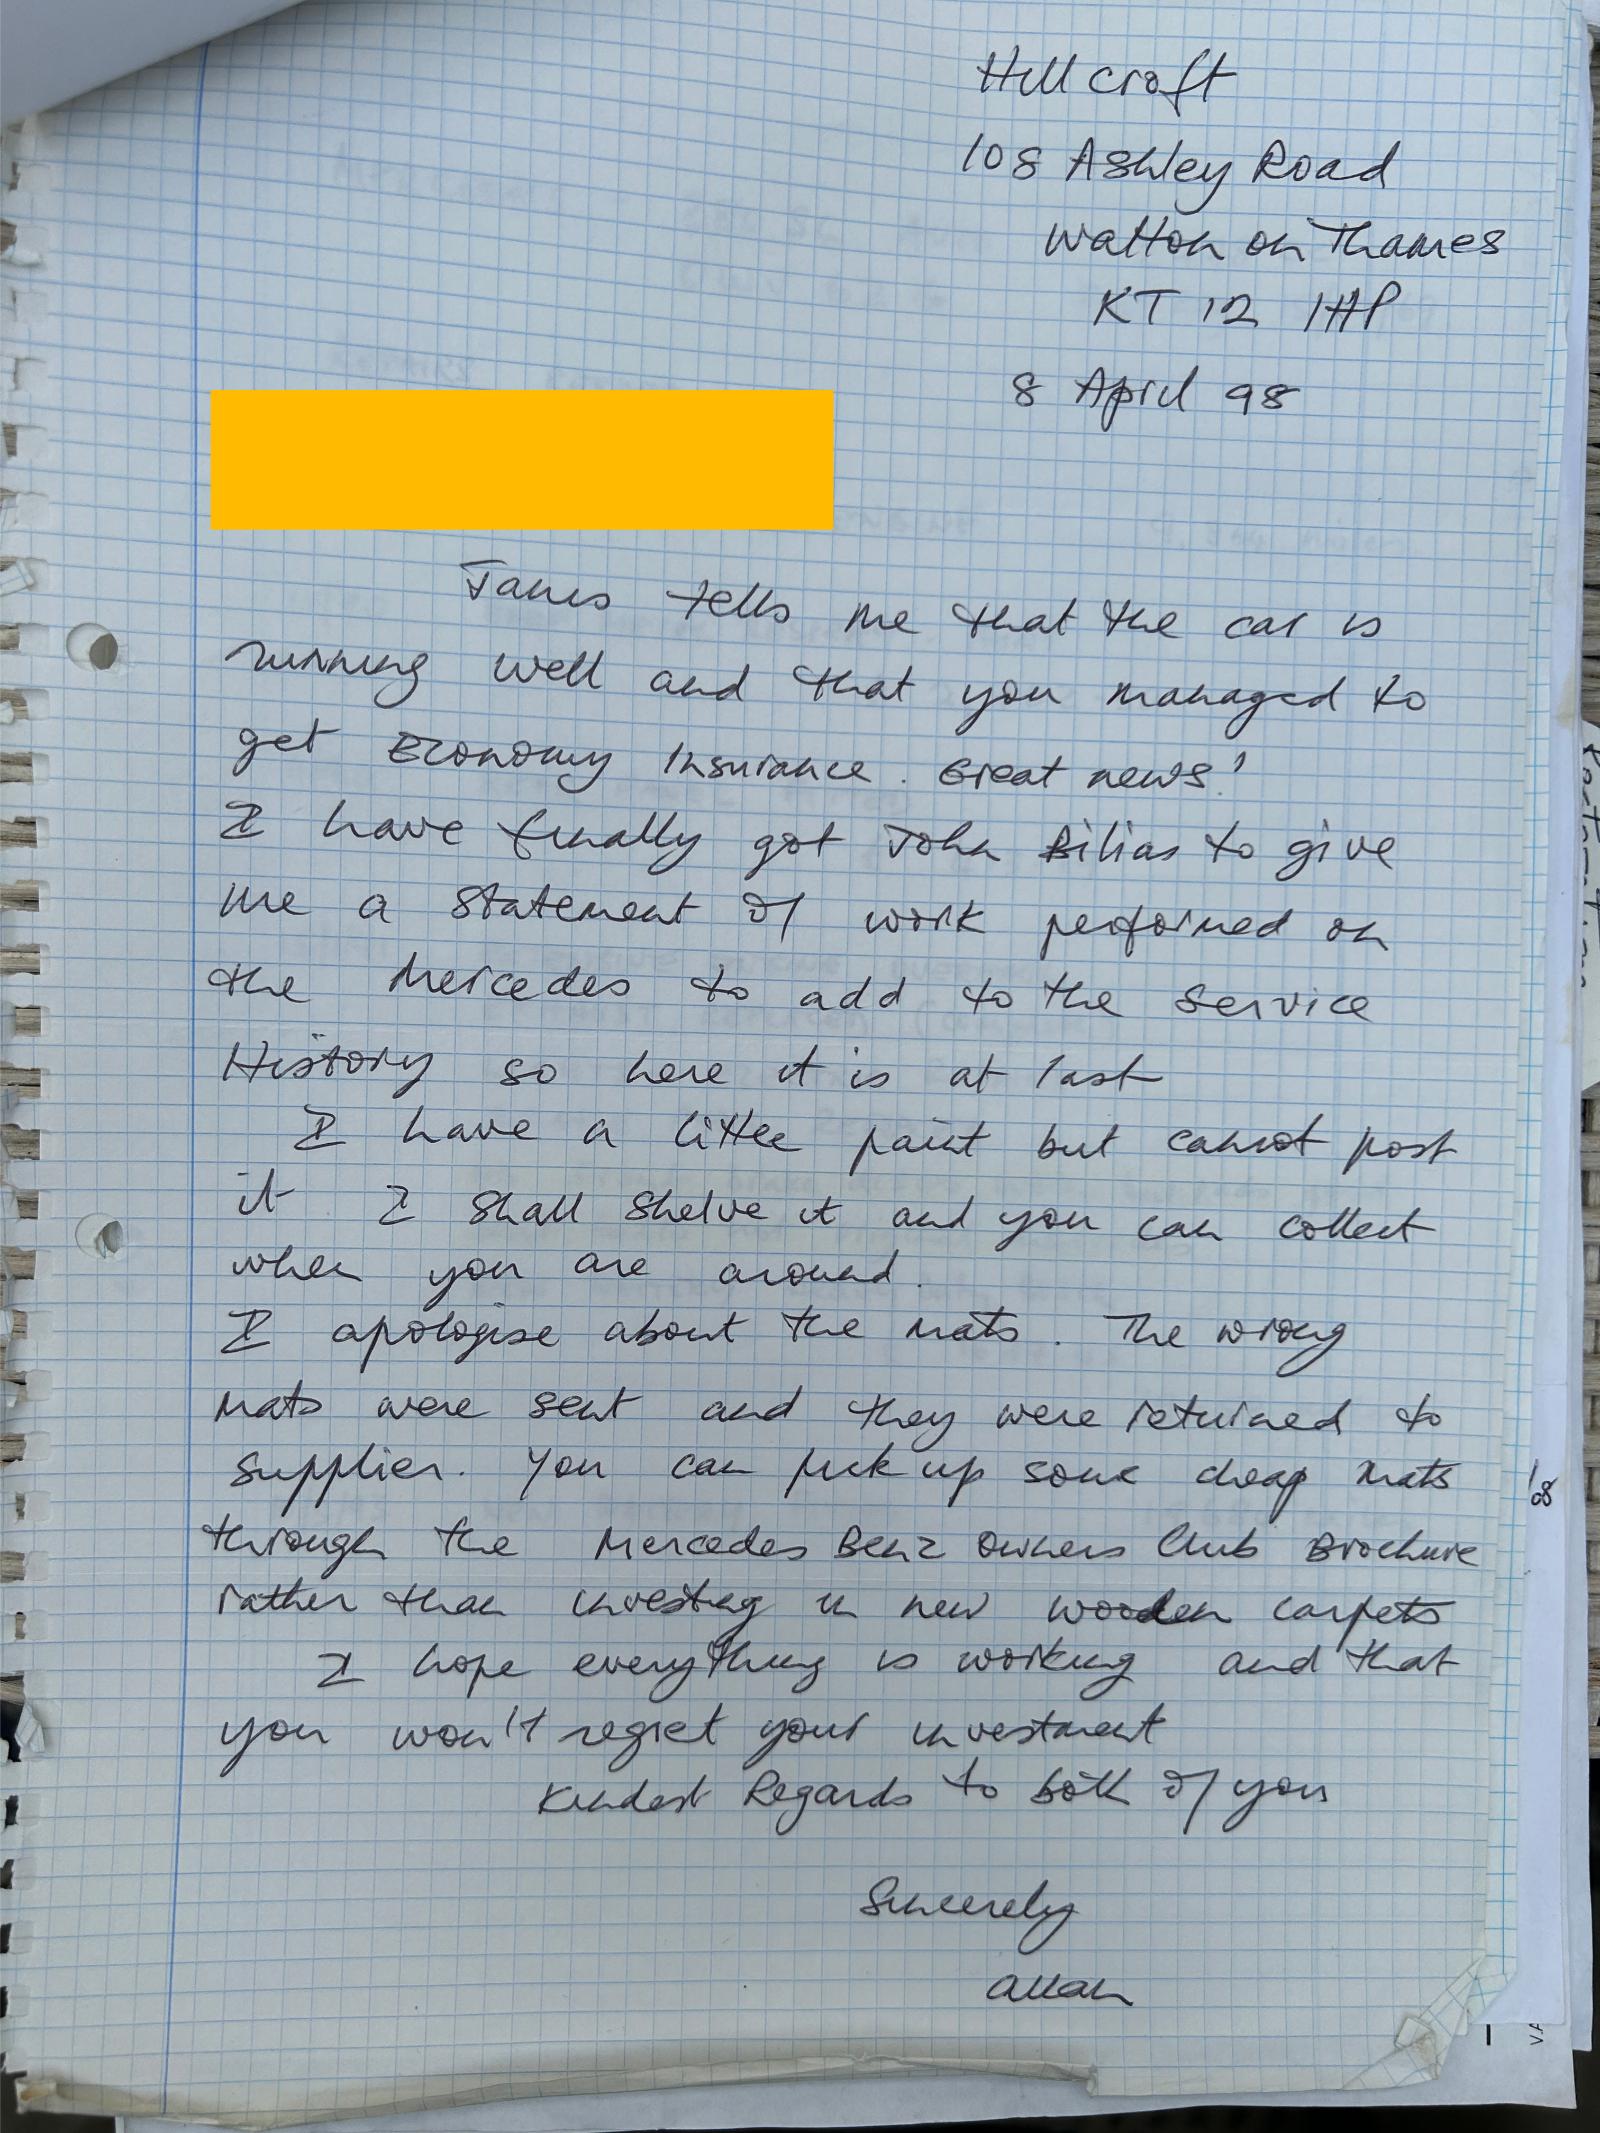 Hillcroft
108 Ashley Road
Walton on Thames
KT 12 1HP
8 April 98
James tells me that the car is
running well and that you managed to
get Economy Insurance. Great news!
I have finally got John Bilias to give
me a statement of work performed on
the Mercedes to add to the Service
History so here it is at last
I have a little paint but cannot post
it I shall shelve it and you can collect
when you are around.
I apologise about the mats. The wrong
mats were sent and they were returned to
supplier. You can pick up some cheap mats
through the Mercedes Benz Owners Club Brochure
rather than investing in new wooden carpets
I hope everything is working and that
you won't regret your investment
Kindest Regards to both of you
Sincerely
Allan